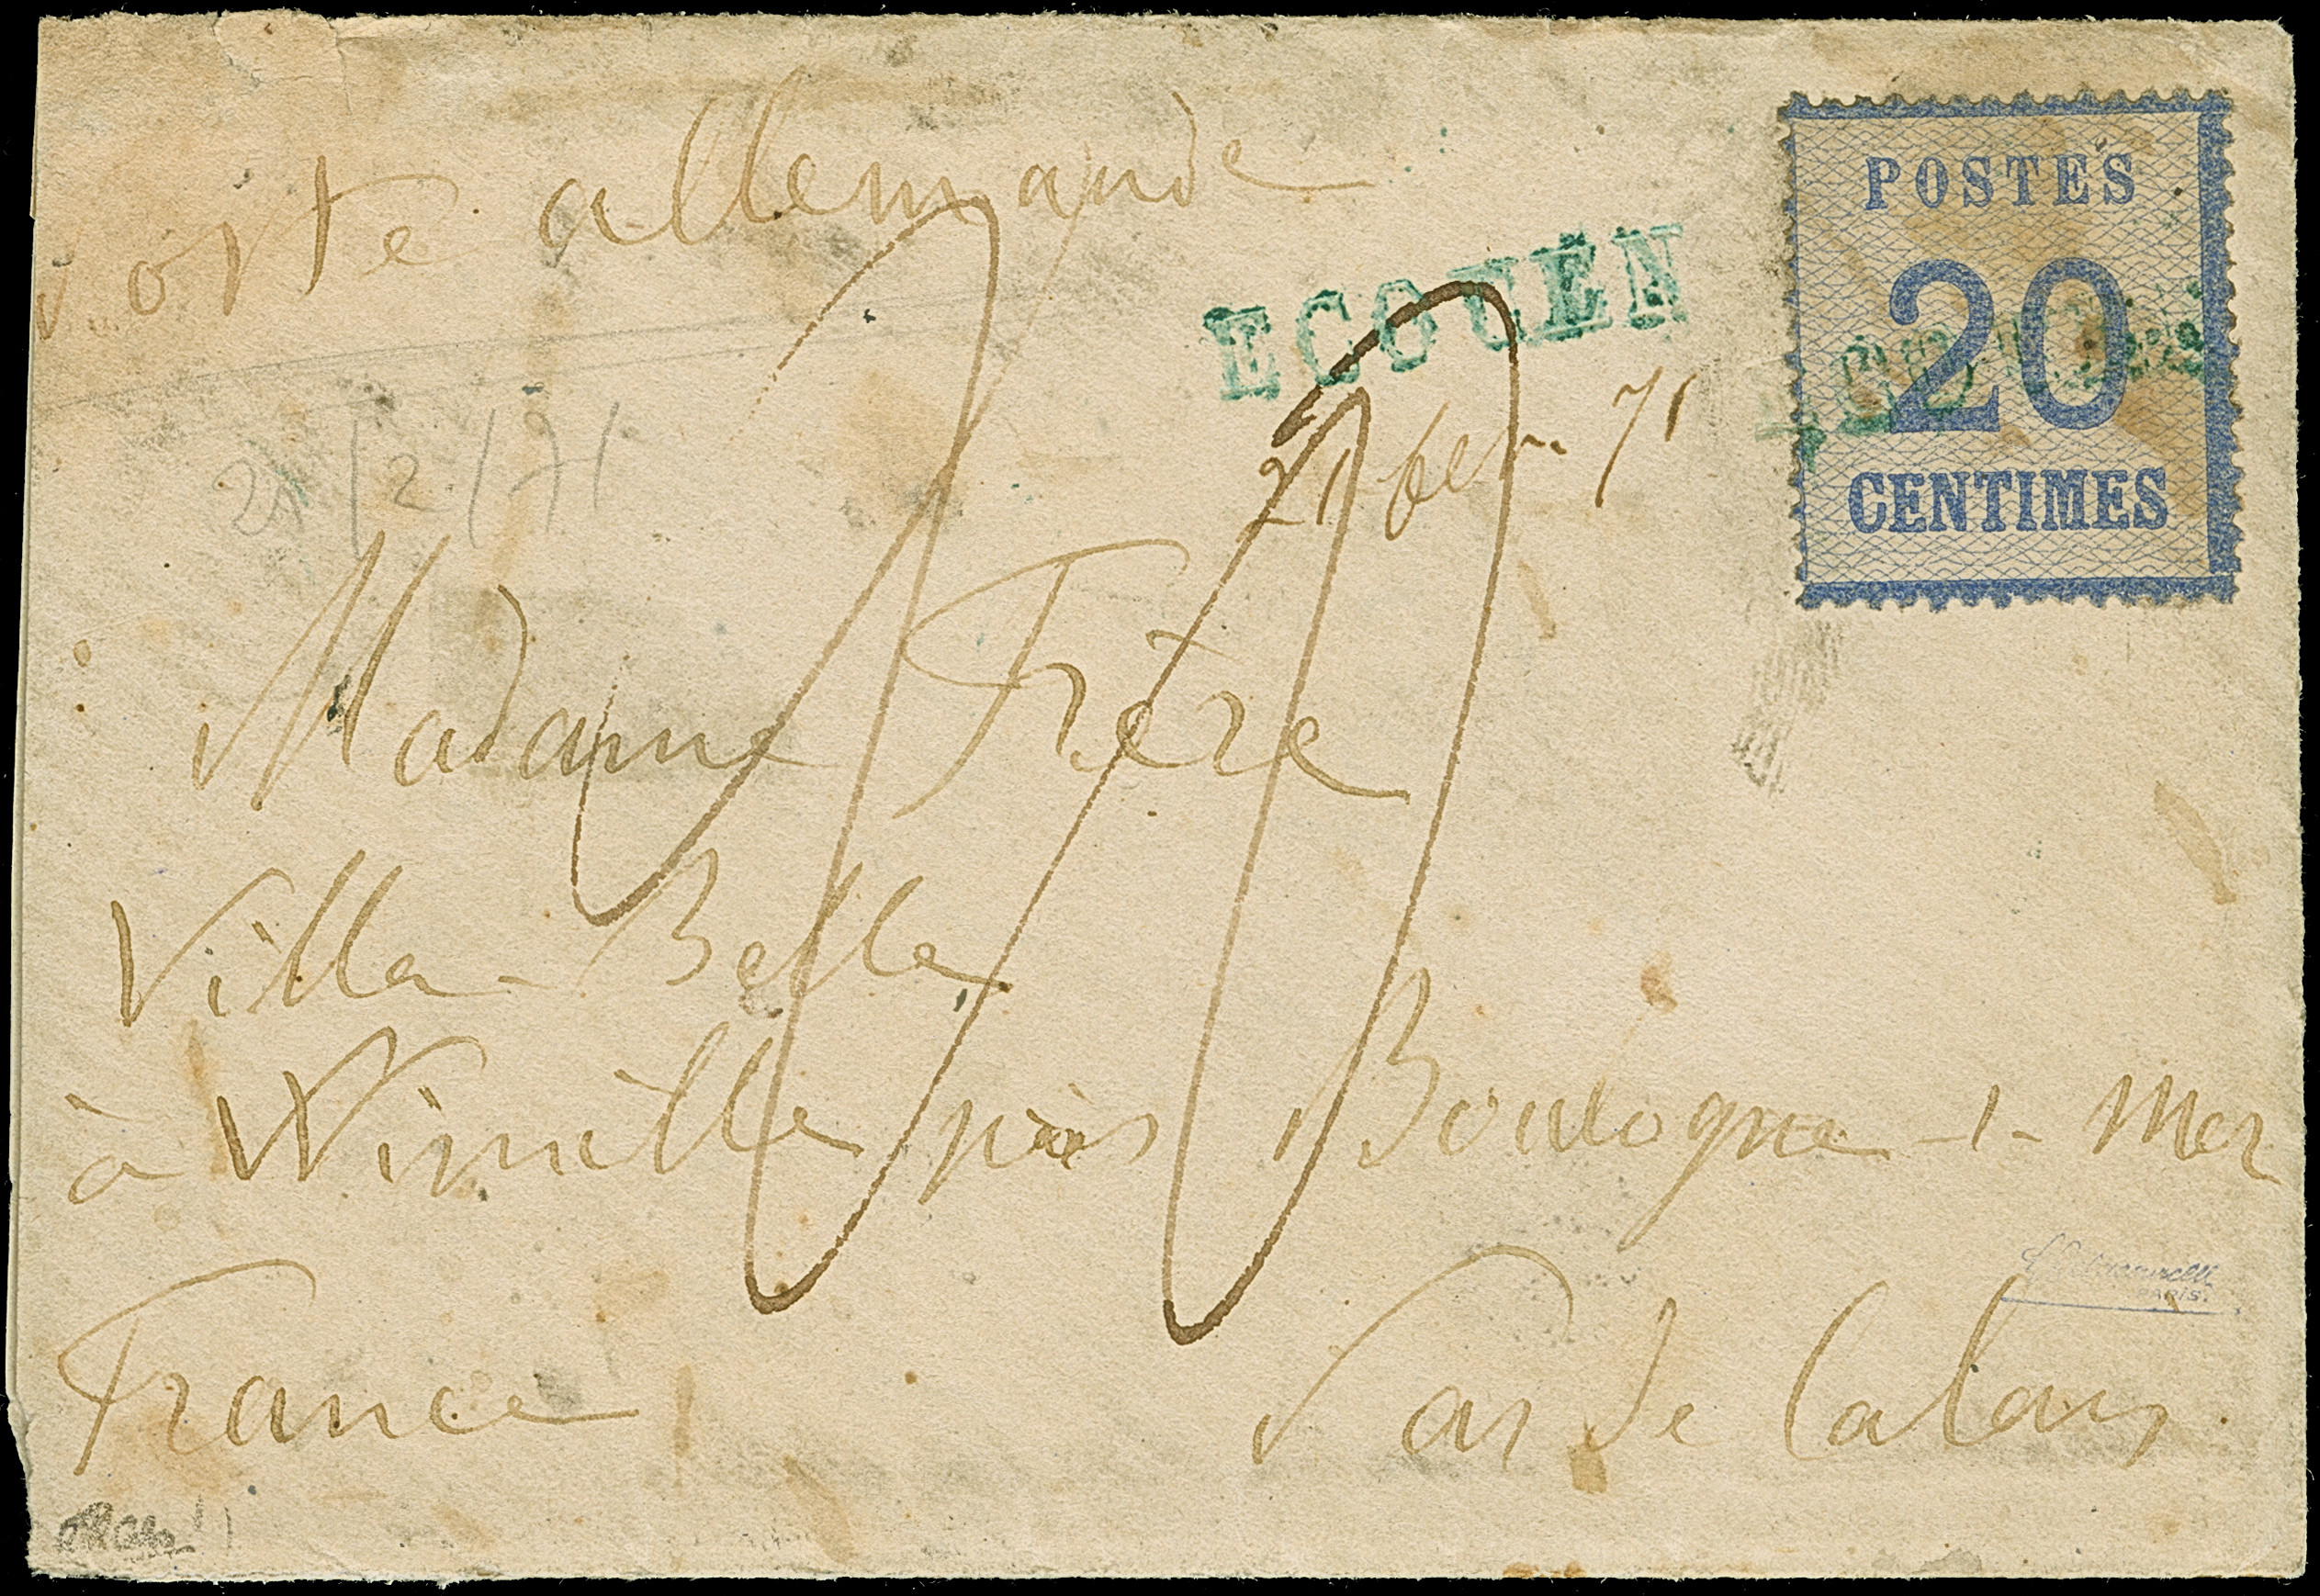 Poste allemande
POSTES
20
CENTIMES
ECOUEN
21 febr. 71
21/2/71
Madame Frère
Villa-Belle
à Wimille près Boulogne-s-Mer
France
Pas de Calais
PARIS.